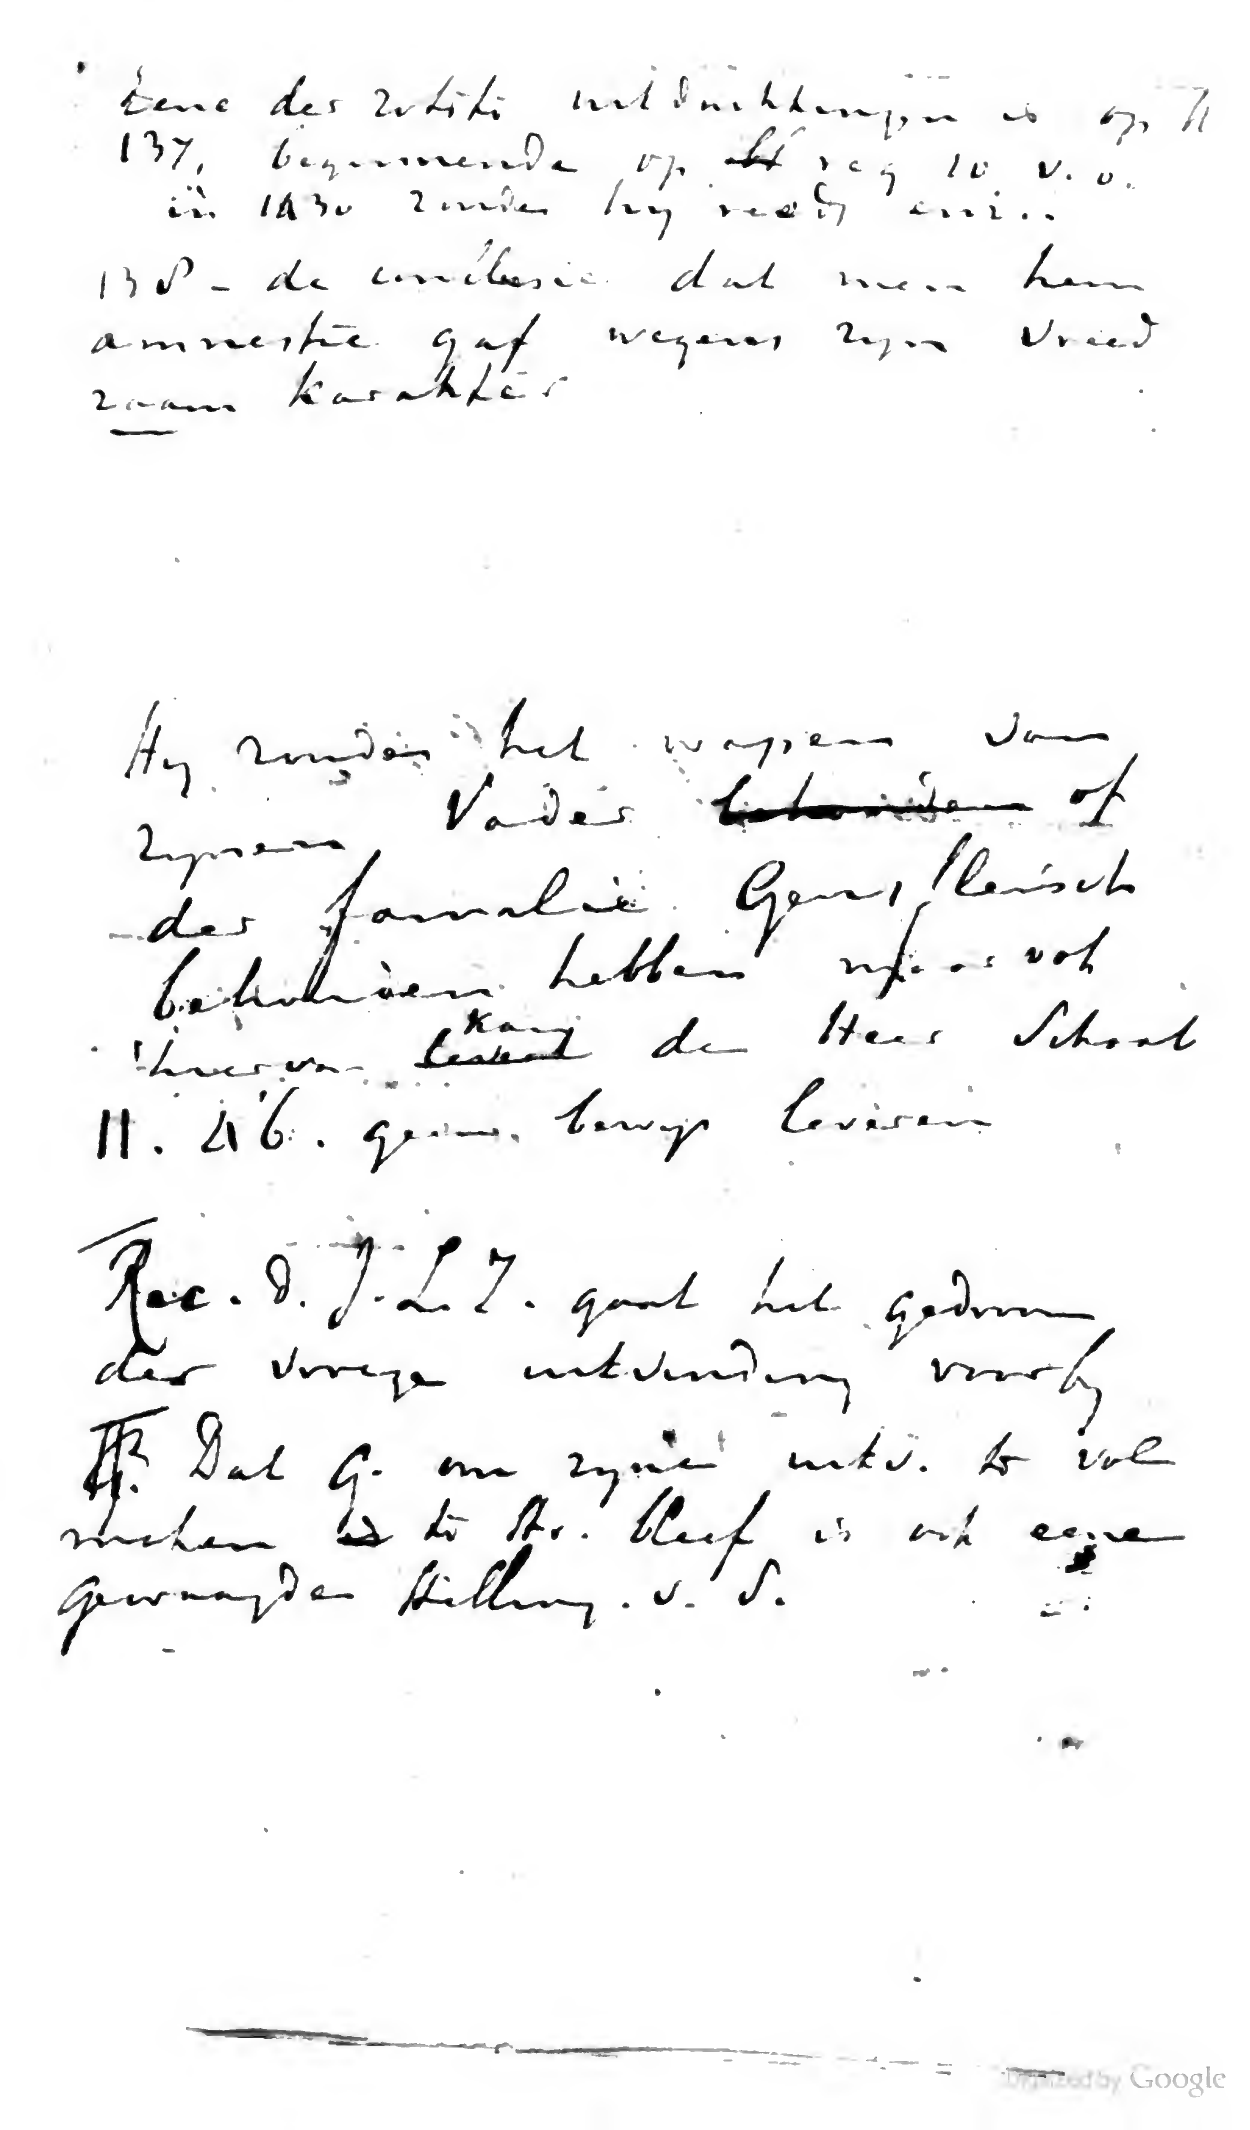 Eene der zotste uitdrukkingen is op H
137, beginnende op reg 10 v. o.
in 1430 zonder hy reeds enz..
138 - de conclusie dat men hem
amnestie gaf wegens zyn vreed
zaam karakter
Hy zoude het wapen van
zynen Vader behouden of
der familie Gensfleisch
behouden hebben maar ook
hiervan kan de Heer Schaab
II. 46. geen bewys leveren
Rec. d. J. L. Z. gaat het gedroom
der vroege uitvinding voorby
Dat G. om zyne uitv. te vol
maken is te Str. bleef is ook eene
gewaagde stelling. v. S.
Digitized by Google